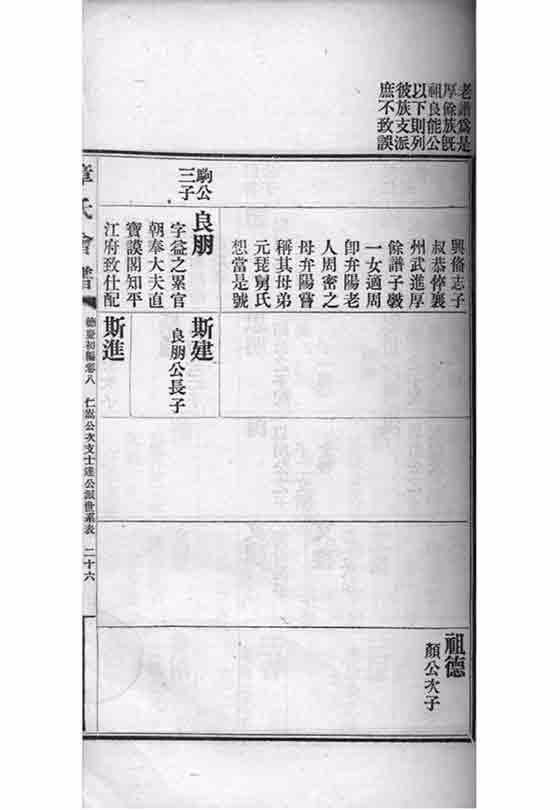 老譜爲是
厚餘族既
祖良能公
以下則列
彼族支派
庶不致誤
興脩志子
叔恭倅襄
州武進厚
餘譜子毅
一女適周
卽弁陽老
人周密之
母弁陽嘗
稱其母弟
元琵舅氏
想當是號
駒公
三子
良朋
字益之累官
朝奉大夫直
寶謨閣知平
江府致仕配
斯建
良朋公長子
斯進
祖德
顏公次子
章氏會譜
德慶初編卷八
仁嵩公次支士達公派世系表
二十六